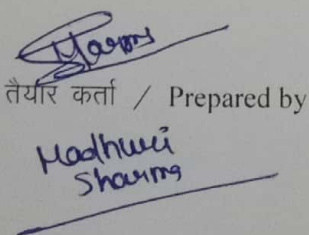 तैयार कर्ता / Prepared by
Madhuri
Sharma